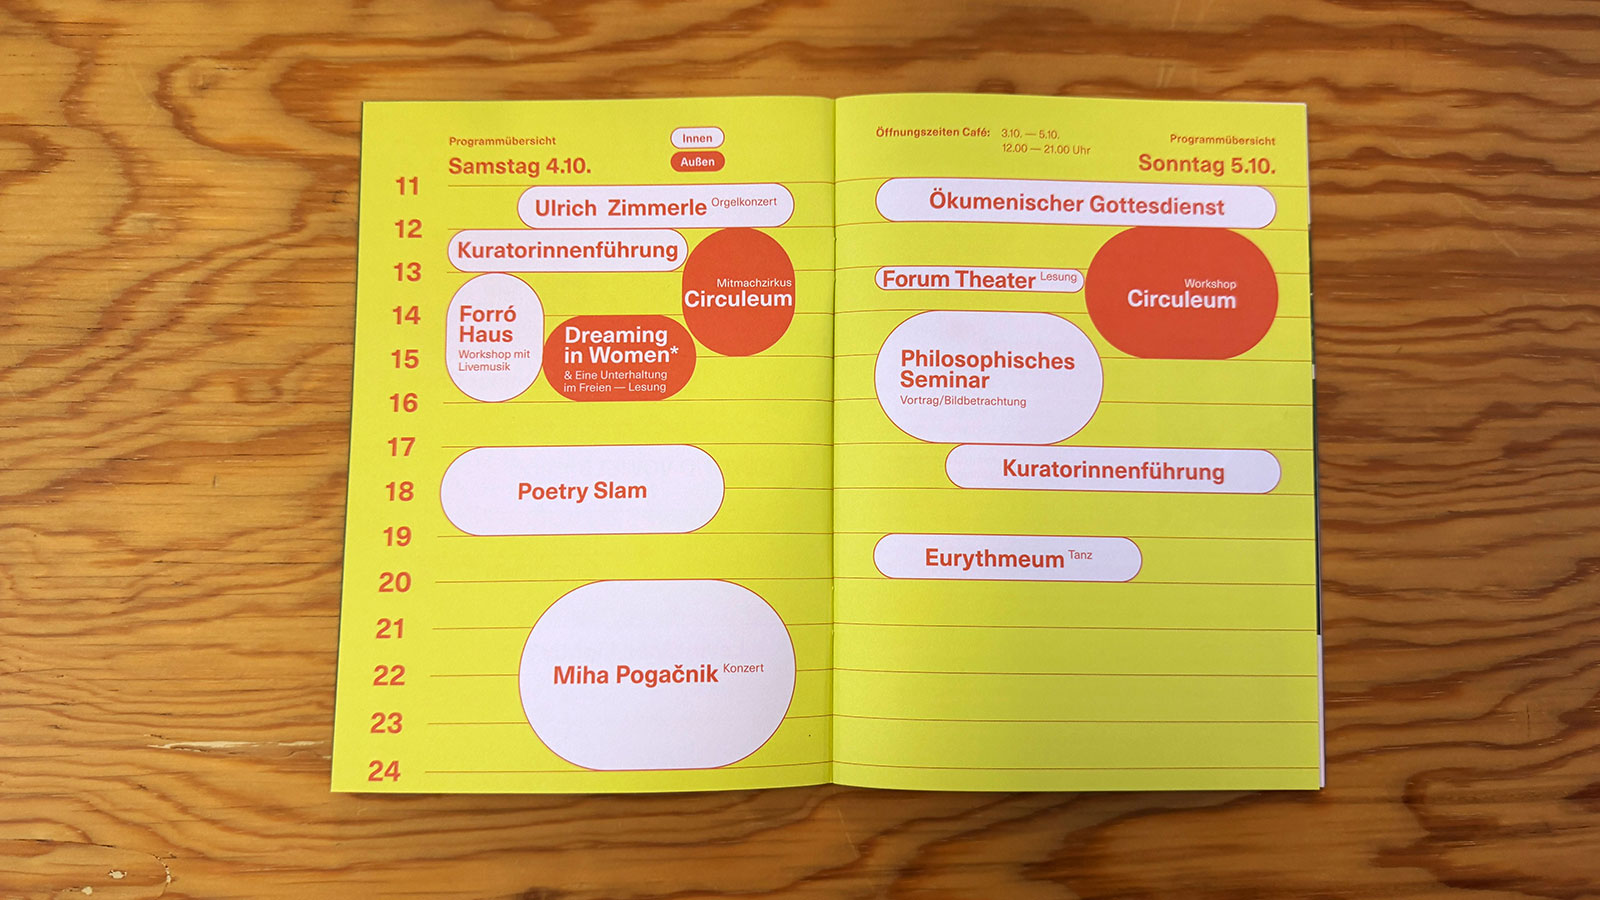 Programmübersicht
Samstag 4.10.
Innen
Außen
11
12
13
14
15
16
17
18
19
20
21
22
23
24
Ulrich Zimmerle Orgelkonzert
Kuratorinnenführung
Mitmachzirkus
Circuleum
Forró
Haus
Workshop mit
Livemusik
Dreaming
in Women*
& Eine Unterhaltung
im Freien — Lesung
Poetry Slam
Miha Pogačnik Konzert
Öffnungszeiten Café: 3.10. — 5.10.
12.00 — 21.00 Uhr
Programmübersicht
Sonntag 5.10.
Ökumenischer Gottesdienst
Forum Theater Lesung
Workshop
Circuleum
Philosophisches
Seminar
Vortrag/Bildbetrachtung
Kuratorinnenführung
Eurythmeum Tanz